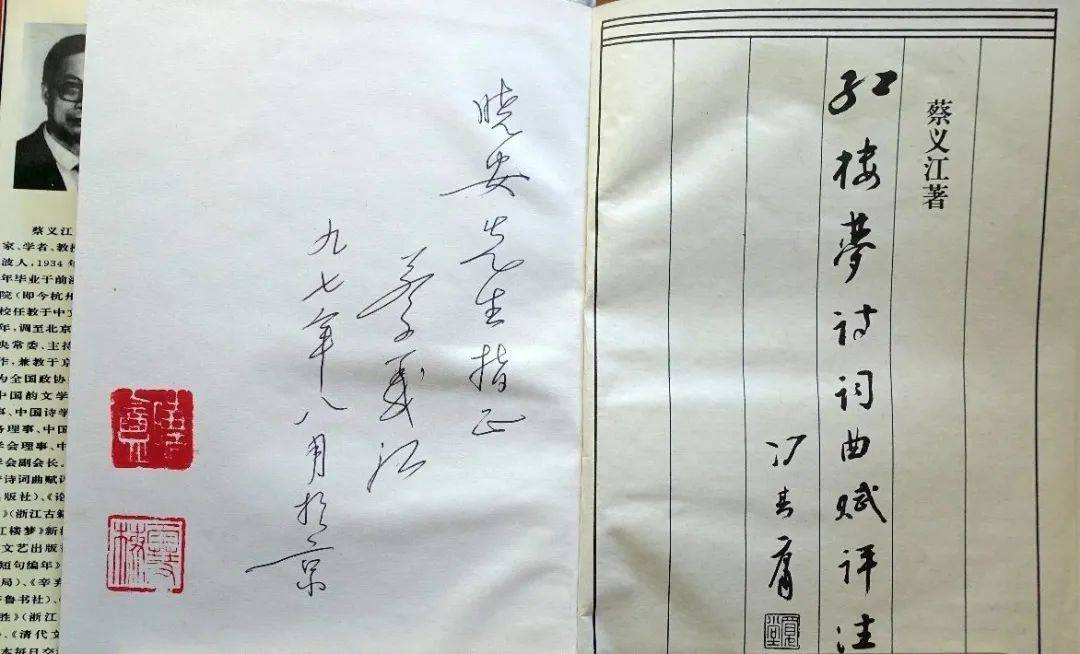 蔡义江
家、学者、教
波人,1934年
年毕业于前浙
院(即今杭州
校任教于中文
年,调至北京
央常委、主持
作,兼教于京
为全国政协
中国韵文学
事、中国诗学
务理事、中国
学会理事、中
学会副会长
诗词曲赋评
出版社)、《论
》(浙江古籍
楼梦》新
文艺出版
短句编年》
局)、《辛弃
鲁书社)、
胜》(浙江
、《清代文
本每日交
晓安先生指正
蔡义江
九七年八月於京
蔡义江著
红楼梦诗词曲赋评注
冯其庸
寬堂